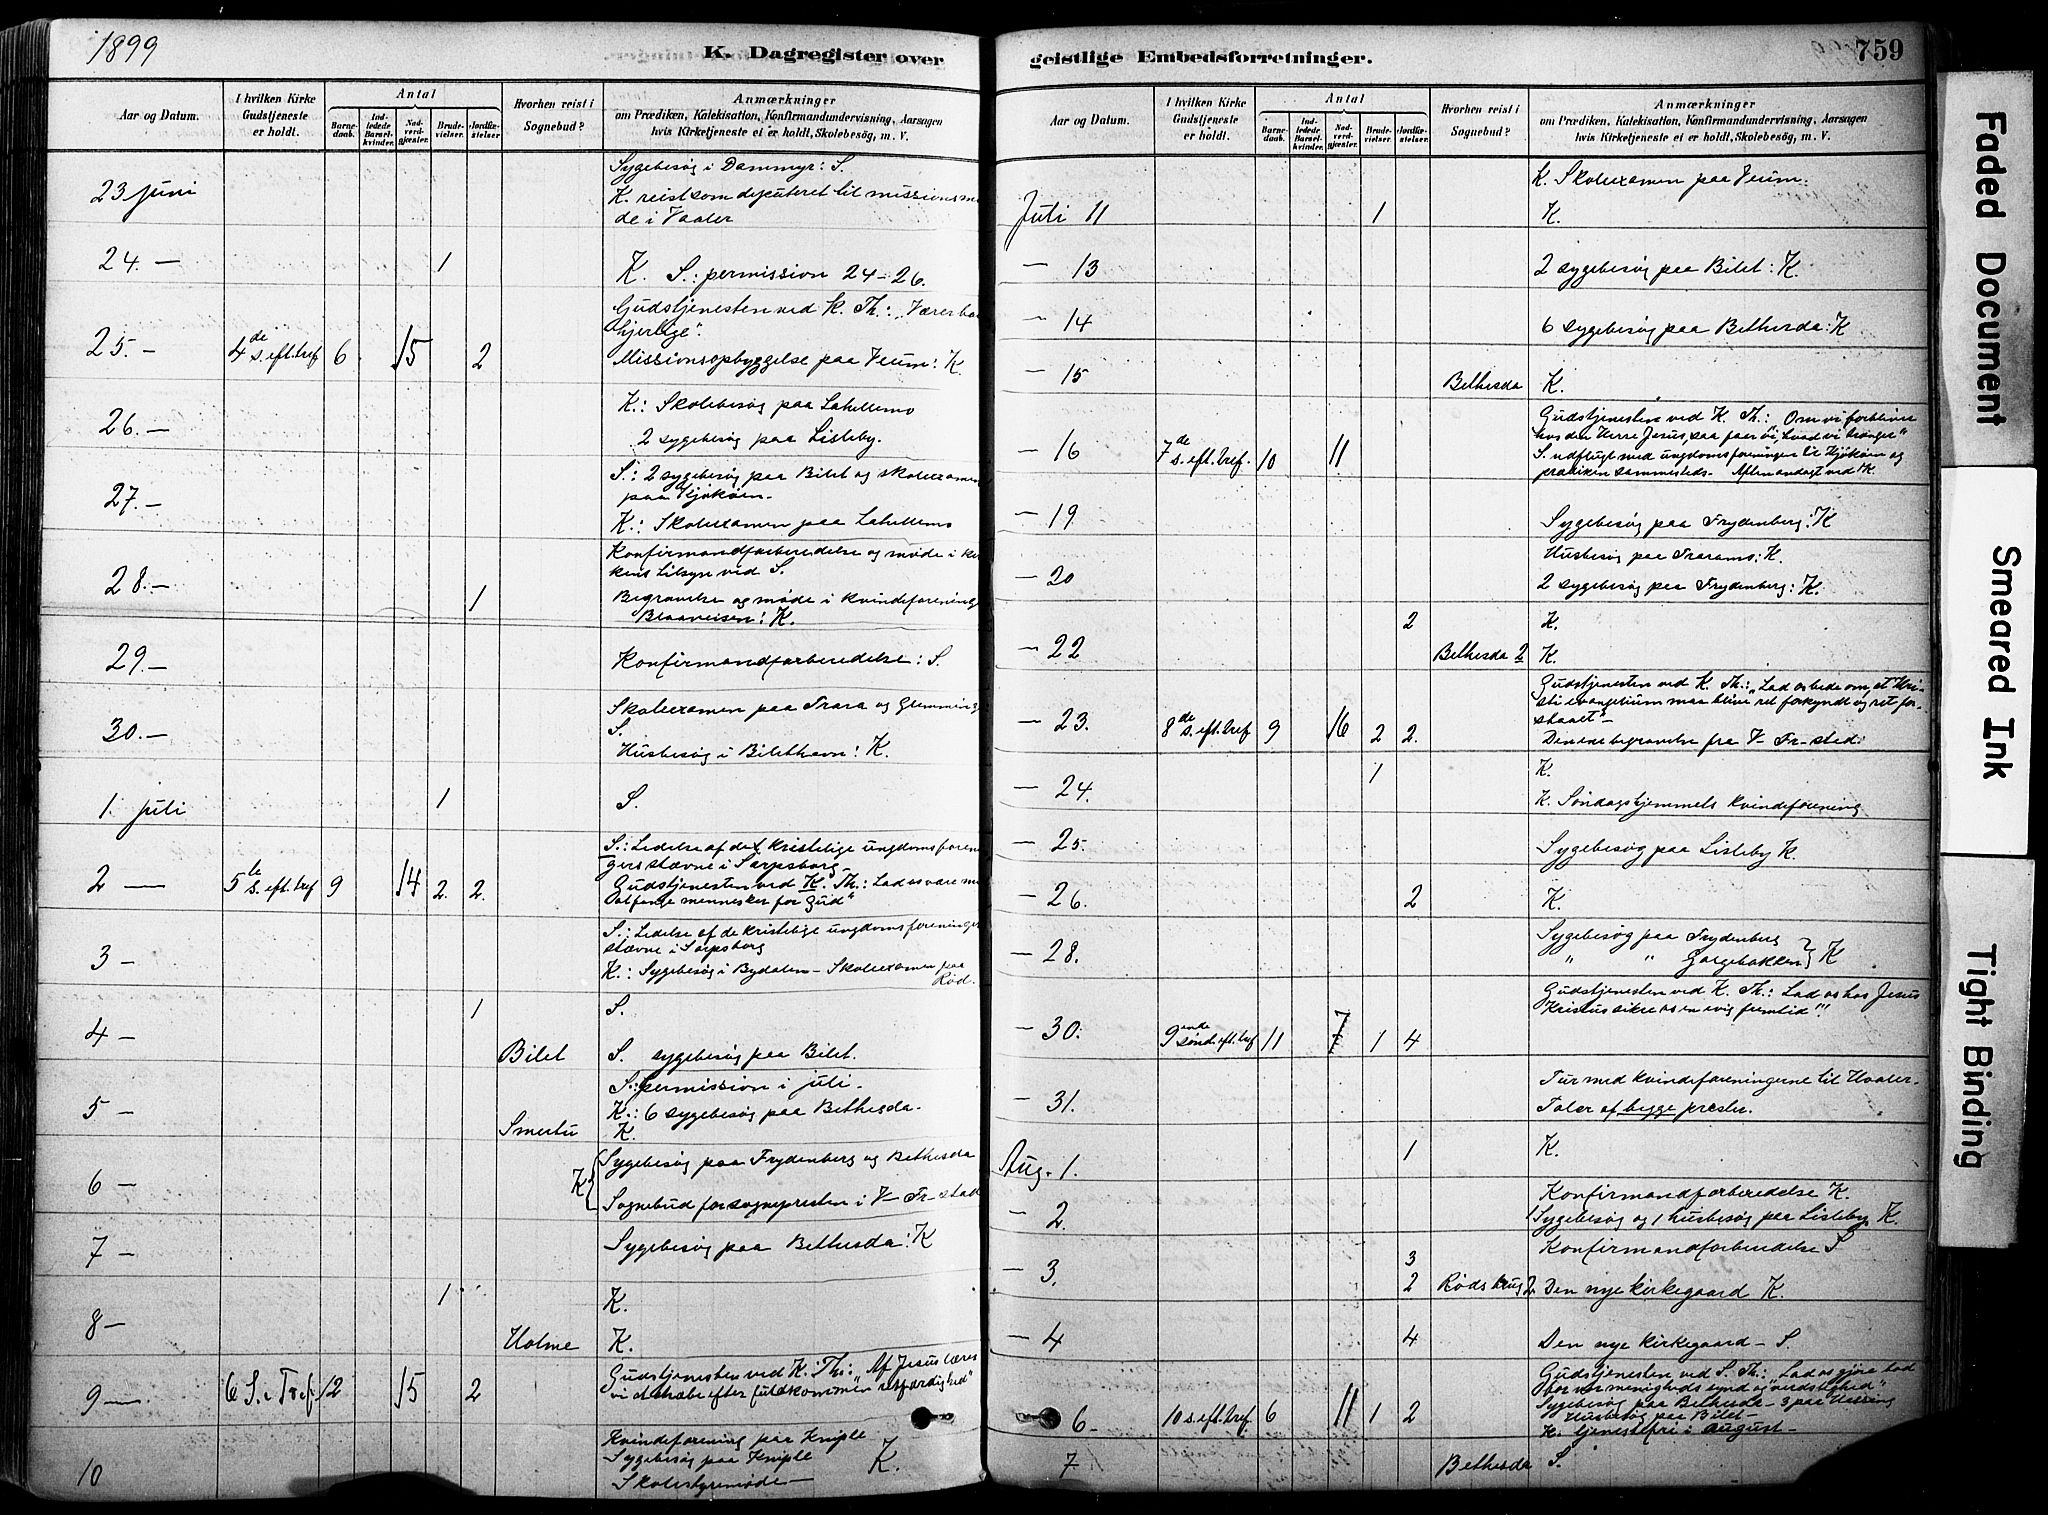 1899
K. Dagregister over
Aar og Datum.
I hvilken Kirke Gudstjeneste er holdt.
Antal
Barnedaab.
Indledede Barselkvinder.
Nadverdgjester.
Brudevielser.
Jordfæstelser
Hvorhen reist i Sognebud?
Anmærkninger
om Prædiken, Katekisation, Konfirmandundervisning, Aarsagen
hvis Kirketjeneste ei er holdt, Skolebesøg, m. V.
23 juni
Sygebesøg i Dammyr: S.
K. reist som deputeret til missionsmø
de i Vaaler
24. — 1 K. S.: permission 24–26.
Gudstjenesten ved K. Th.: „Værer
25. — 4de s. eft. tref 6 15 2
Missionsopbyggelse paa Veum: K.
K.: Skolebesøg paa Lahellemo
26. —
2 sygebesøg paa Lisleby.
S.: 2 sygebesøg paa Bilet og skoleexamen
27. —
paa Kjøkøen.
K.: Skoleexamen paa Lahellemo
Konfirmandforberedelse og møde i kir
28. —
kens tilsyn ved S.
1 Begravelse og møde i kvindeforening
Blaaveisen: K.
29. — Konfirmandforberedelse: S.
Skoleexamen paa Trara og Glemminge
S.
30. —
Husbesøg i Bilethavn: K.
1. juli 1 S.
S.: Ledelse af det kristelige ungdomsforen
gers stævne i Sarpsborg
2 — 5te s. eft. tref 9 14 2. 2.
Gudstjenesten ved K. Th.: Lad os være me
mennesker for Gud"
S.: Ledelse af de kristelige ungdomsforeninger
stævne i Sarpsborg
3 —
K.: Sygebesøg i Bydalen – Skoleexamen paa
Rød.
1 S.
4 —
Bilet S. sygebesøg paa Bilet.
S.: permission i juli.
5 —
K.: 6 sygebesøg paa Bethesda.
Smertu K.
6 — K { Sygebesøg paa Frydenberg og Bethesda
Sognebud for sognepresten i V– Fr–stad
7 — Sygebesøg paa Bethesda: K
1 K.
8 —
Holme K.
9 — 6 S. e Tref. 12 15 2
Gudstjenesten ved K: Th: Af Jesus lærer
vi at efter fuldkommen retfærdighed"
Kvindeforening paa Kniple
10 Sygebesøg paa Kniple K.
Skolestyremøde —
geistlige Embedsforretninger.
759
Aar og Datum.
I hvilken Kirke Gudstjeneste er holdt.
Antal
Barnedaab.
Indledede Barselkvinder.
Nadverdgjester.
Brudevielser.
Jordfæstelser
Hvorhen reist i Sognebud?
Anmærkninger
om Prædiken, Katekisation, Konfirmandundervisning, Aarsagen
hvis Kirketjeneste ei er holdt, Skolebesøg, m. V.
K. Skoleexamen paa Veum.
Juli 11 1 K.
— 13 2 sygebesøg paa Bilet: K.
— 14 6 sygebesøg paa Bethesda: K
— 15 Bethesda K.
Gudstjenesten ved K. Th.: Om vi forbliver
hos den Herre Jesus, saa faar vi, hvad vi trænger"
— 16 7de s. eft. tref. 10 11
S. udflugt med ungdomsforeningen til Kjøkøen og
prædiken sammesteds. Aftenandagt ved K.
— 19 Sygebesøg paa Frydenberg: K
Husbesøg paa Traramo: K.
— 20
2 sygebesøg paa Frydenberg: K.
2 K.
— 22
Bethesda 2 K.
Gudstjenesten ved K. Th.: „Lad os bede om, at Kri-
sti evangelium maa blive ret forkyndt og ret for-
staaet"
— 23. 8de s. eft. tref 9 16 2 2.
Den ene begravelse fra V– Fr–sted.
1 K.
— 24.
K. Søndagshjemmets kvindeforening
— 25. Sygebesøg paa Lisleby K.
— 26. 2 K.
— 28. Sygebesøg paa Frydenberg
„ „ Gorgebakken } K
Gudstjenesten ved K. Th.: Lad os hos Jesus
Kristus sikre os en evig fremtid"!
— 30. 9ende sønd. eft. tref 11 7 1 4
— 31. Tur med kvindeforeningerne til Hvaler.
Taler af begge prester.
Aug. 1. 1 K.
— 2. Konfirmandforberedelse K.
1 Sygebesøg og 1 husbesøg paa Lisleby. K.
3 Konfirmandforberedelse S
— 3.
2 Røds brug 2 Den nye kirkegaard K.
— 4 4 Den nye kirkegaard – S.
Gudstjenesten ved S. Th.: „Lad os gjøre bod
for vor menigheds synd og verdslighed"
Sygebesøg paa Bethesda – 3 paa
6 – 10 s. eft. tref. 6 11 1 2
Husbesøg paa Bilet –
K. tjenestefri i August –
7 Bethesda S.
Faded Document
Smeared Ink
Tight Binding